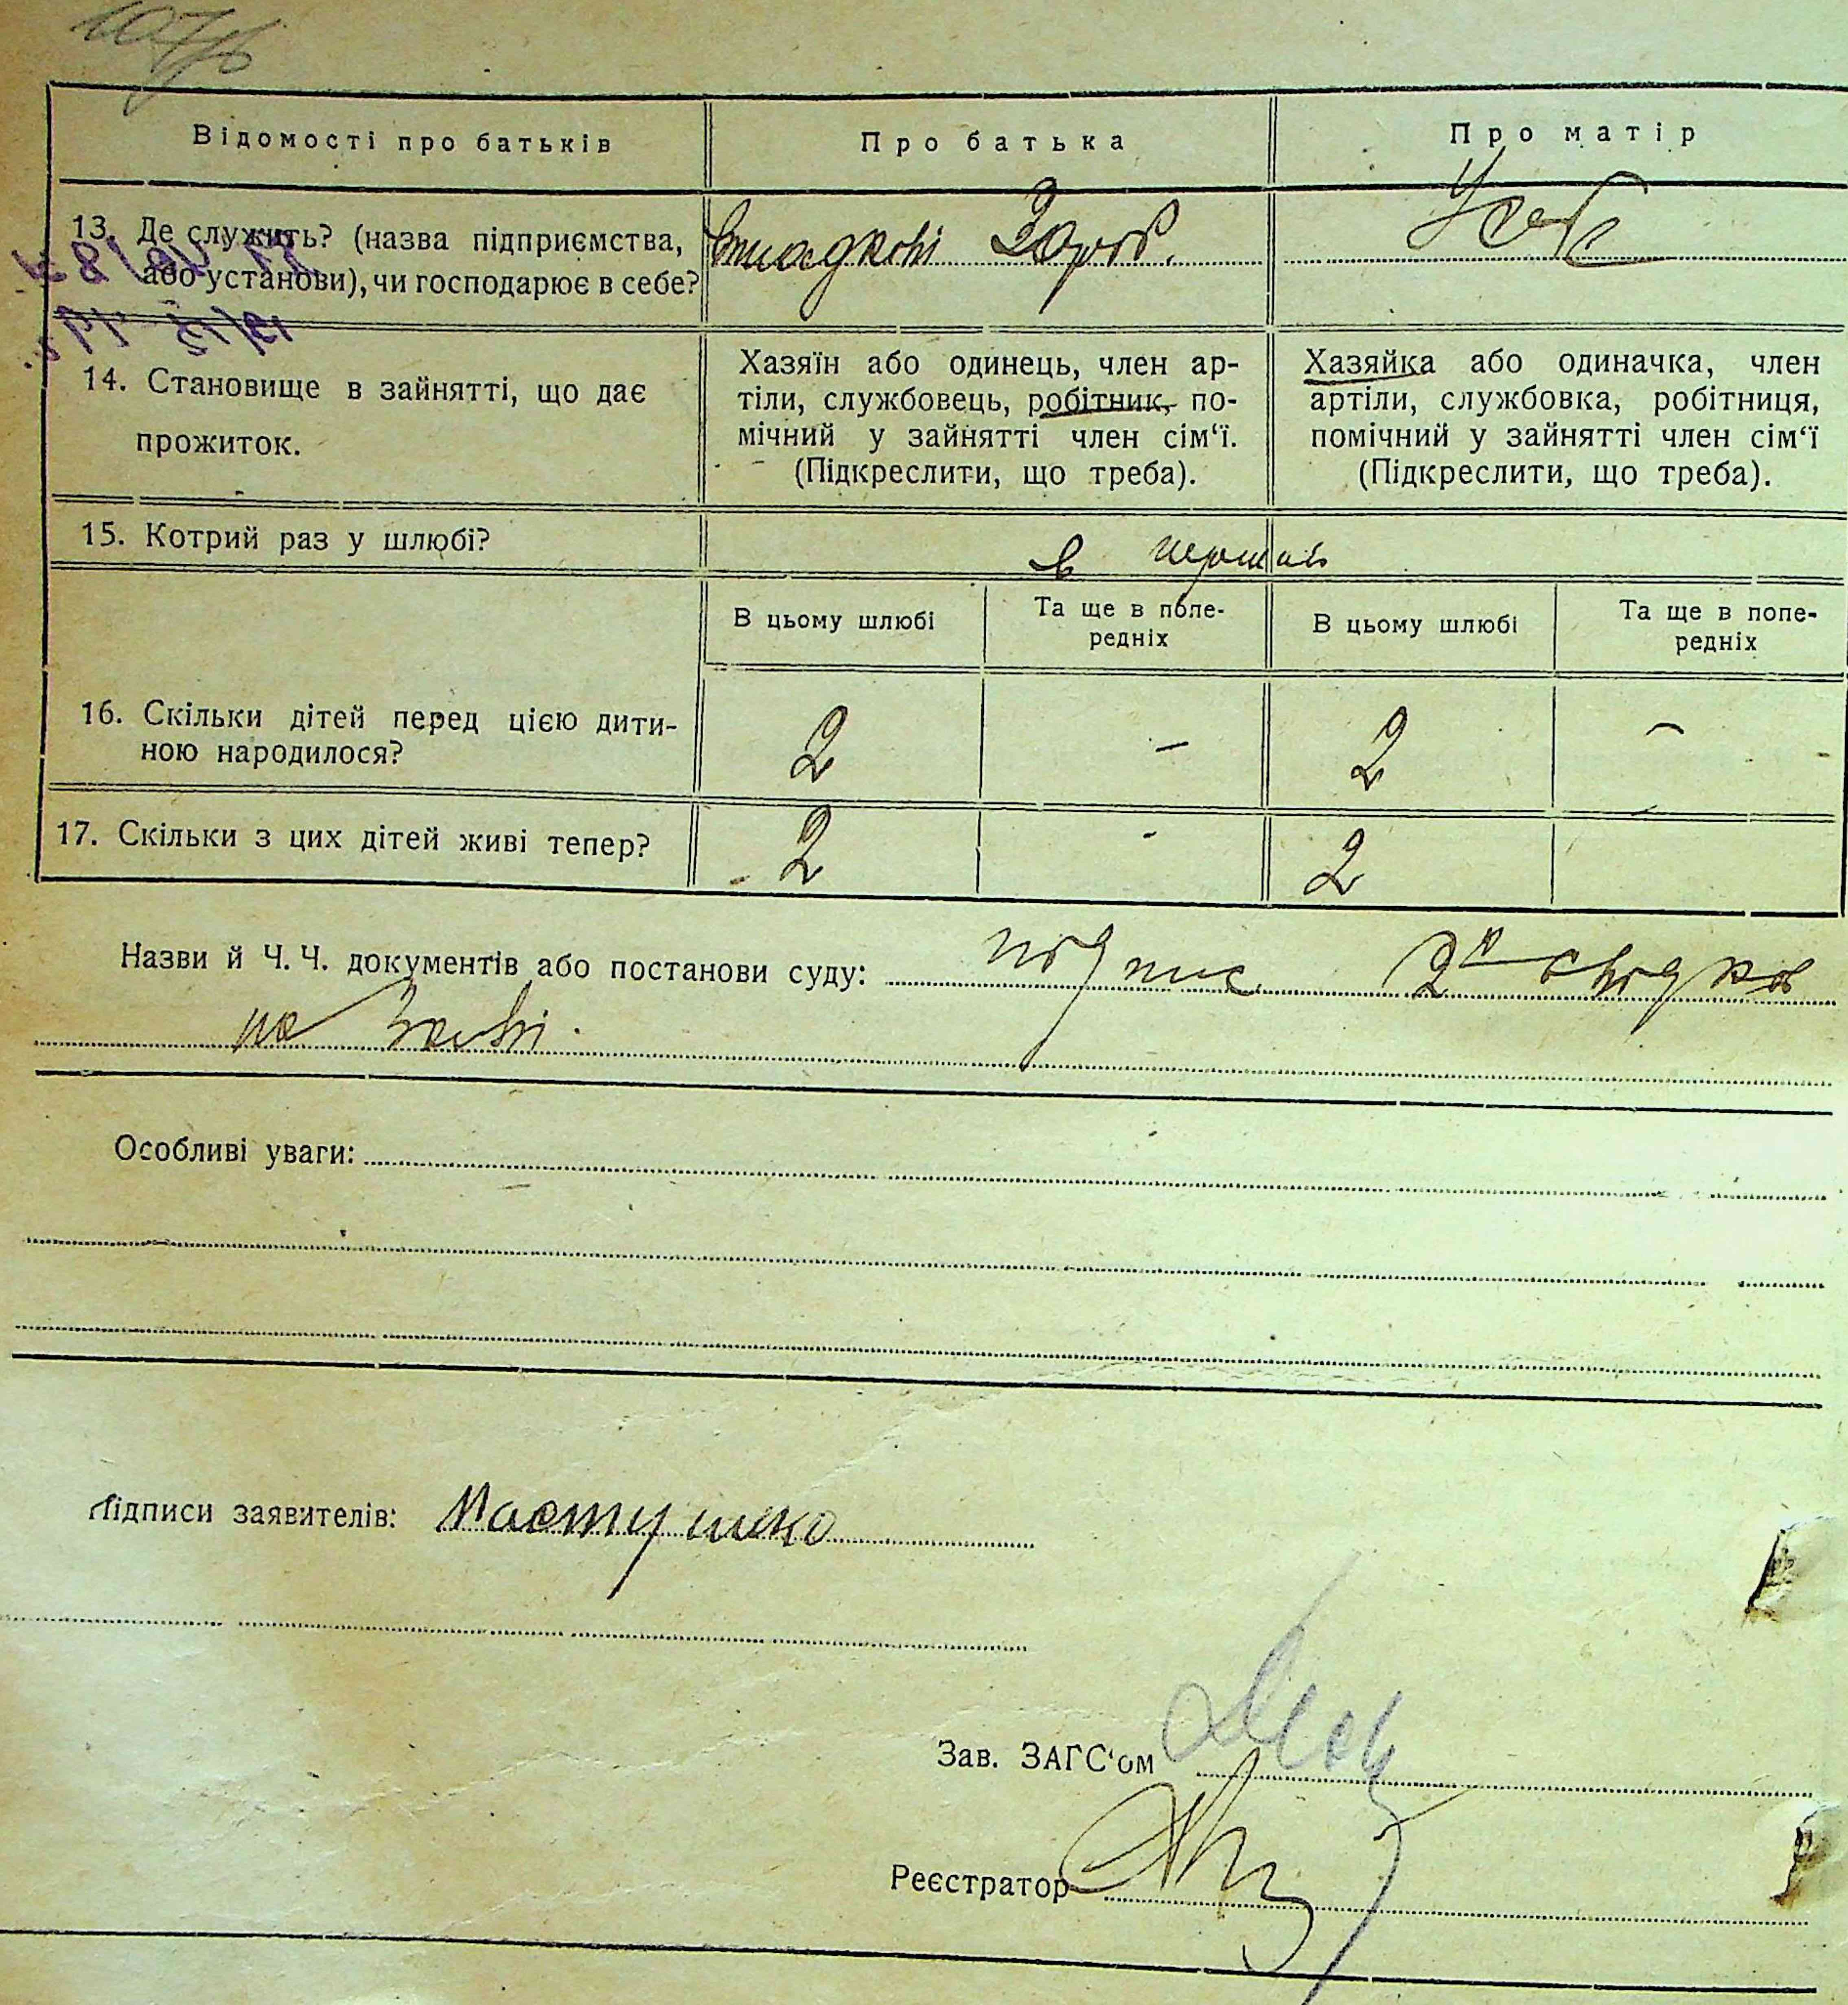 Відомості про батьків
Про батька
Про матір
13. Де служить? (назва підприємства,
або установи), чи господарює в себе?
14. Становище в зайнятті, що дає
прожиток.
Хазяїн або одинець, член ар-
тіли, службовець, робітник, по-
мічний у зайнятті член сім‘ї.
(Підкреслити, що треба).
Хазяйка або одиначка, член
артіли, службовка, робітниця,
помічний у зайнятті член сім‘ї
(Підкреслити, що треба).
15. Котрий раз у шлюбі?
в
В цьому шлюбі
Та ще в попе-
редніх
В цьому шлюбі
Та ще в попе-
редніх
16. Скільки дітей перед цією дити-
ною народилося?
2 - 2 -
17. Скільки з цих дітей живі тепер?
2 - 2
Назви й Ч. Ч. документів або постанови суду: підпис 2х свідків
на заяві.
Особливі уваги:
Підписи заявителів:
Зав. ЗАГС‘ом
Реєстратор